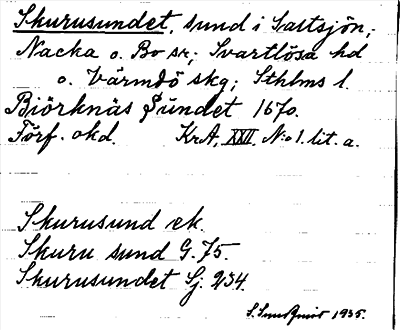 Skurusundet, sund i Saltsjön;
Nacka o. Bo sr; Svartlösa hd
o. Värmdö skg; Sthlms l.
Biörknäs Sundet 1670.
Förf. okd. KrA, XXII, N:o 1. lit. a.
Skurusund ek.
Skuru sund G. 75.
Skurusundet Sj. 234.
S. 1935.